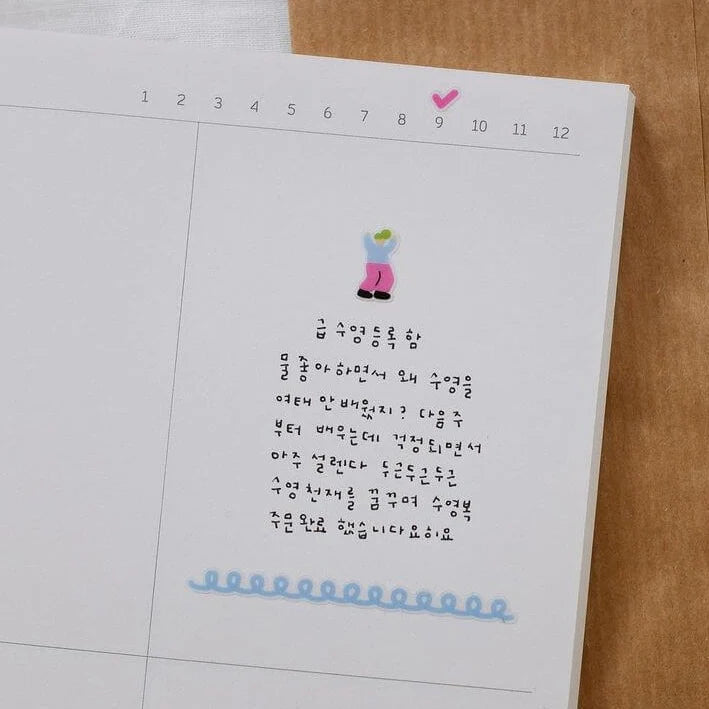 1 2 3 4 5 6 7 8 9 10 11 12
급 수영등록 함
물 좋아하면서 왜 수영을
여태 안 배웠지? 다음주
부터 배우는데 걱정되면서
아주 설렌다 두근두근두근
수영천재를 꿈꾸며 수영복
주문완료 했습니다요히요